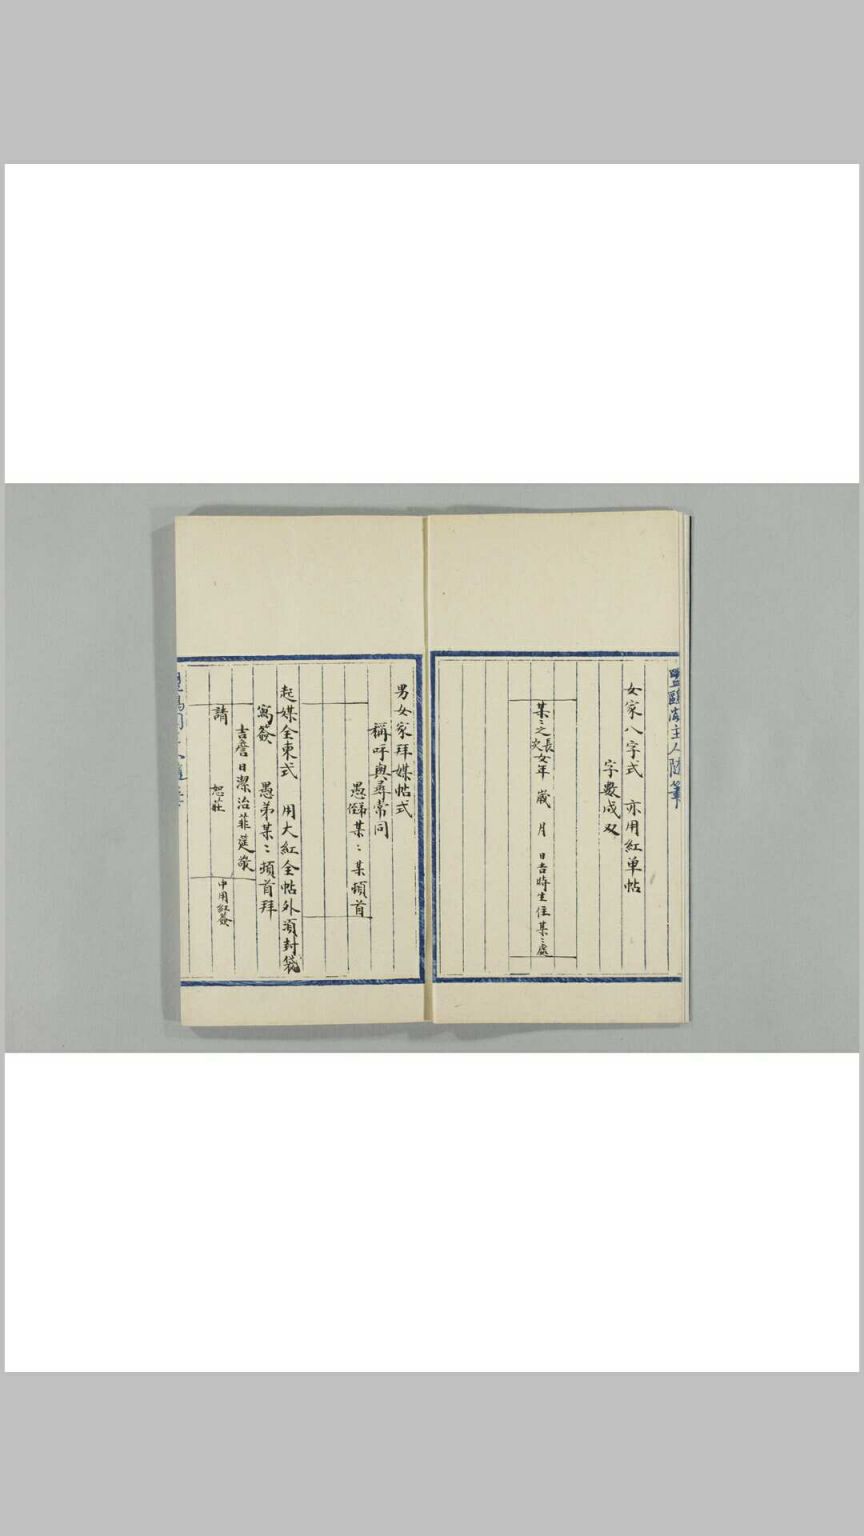 女家八字式　亦用紅单帖
字數成双
某〻之長次女年　歲　月　日吉時生住某〻處
男女家拜媒帖式
稱呼與尋常同
愚　某〻某頓首
起媒全柬式　用大紅全帖外須封袋
寫簽　愚弟某〻頓首拜
吉詹日潔治菲筵敬
請　恕莊
中用紅簽
主人隨筆